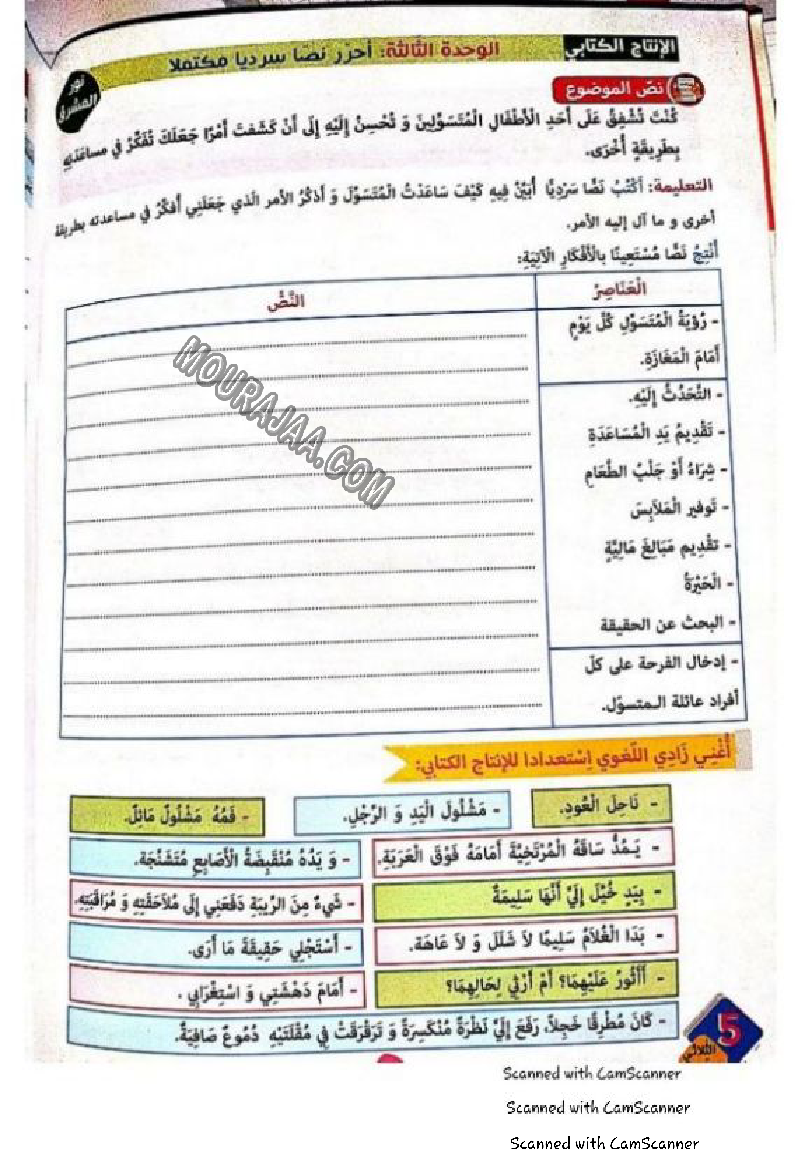 الإنتاج الكتابي
الوحدة الثالثة: أحرر نصا سرديا مكتملا
نور المشرق
نصّ الموضوع
كُنْتَ تُشْفِقُ عَلَى أَحَدِ الْأَطْفَالِ الْمُتَسَوِّلِينَ وَ تُحْسِنُ إِلَيْهِ إِلَى أَنْ كَشَفْتَ أَمْرًا جَعَلَكَ تُفَكِّرُ فِي مساعدتِهِ
بِطَرِيقَةٍ أُخْرَى.
التعليمة: أَكْتُبُ نَصًّا سَرْدِيًّا أُبَيِّنُ فِيهِ كَيْفَ سَاعَدْتُ الْمُتَسَوِّلَ وَ أذكُرُ الأمر الّذي جَعَلَنِي أُفَكِّرُ في مساعدته بطريقة
أخرى و ما آل إليه الأمر.
أُنْتِجُ نَصًّا مُسْتَعِينًا بِالْأَفْكَارِ الْآتِيَةِ:
الْعَنَاصِرُ
النَّصُّ
- رُؤيَةُ الْمُتَسَوِّلِ كُلَّ يَوْمٍ
أَمَامَ الْمَغَازَةِ.
- التَّحَدُّثُ إِلَيْهِ.
- تَقْدِيمُ يَدِ الْمُسَاعَدَةِ
- شِرَاءُ أَوْ جَلْبُ الطَّعَامِ
- تَوفير الْمَلَابِسَ
- تقْدِيم مَبَالِغَ مَالِيَّةٍ
- الْحَيْرَةُ
- البحث عن الحقيقة
- إدخال الفرحة على كلّ
أفراد عائلة المتسوّل.
أُغْنِي زَادِي اللّغوي اِسْتعدادا للإنتاج الكتابي:
- نَاحِلَ الْعُودِ.
- مَشْلُولَ الْيَدِ وَ الرِّجْلِ.
- فَمُهُ مَشْلُولٌ مَائِلٌ.
- يَمُدُّ سَاقَهُ الْمُرْتَخِيَّةَ أَمَامَهُ فَوْقَ الْعَرَبَةِ.
- وَ يَدُهُ مُنْقَبِضَةُ الْأَصَابِعِ مُتَشَنِّجَة.
- بِيَدٍ خُيِّلَ إِلَيَّ أَنَّهَا سَلِيمَةٌ
- شَيْءٌ مِنَ الرِّيبَةِ دَفَعَنِي إِلَى مُلَاحَقَتِهِ وَ مُرَاقَبَتِهِ.
- بَدَا الْغُلاَمُ سَلِيمًا لاَ شَلَلَ وَ لاَ عَاهَة.
- أَسْتَجْلِي حَقِيقَةَ مَا أَرَى.
- أَأَثُورُ عَلَيْهِمَا؟ أَمْ أَرْثِي لِحَالِهِمَا؟
- أَمَامَ دَهْشَتِي وَ اسْتِغْرَابِي .
- كَانَ مُطْرِقًا خَجِلاً، رَفَعَ إِلَيَّ نَظْرَةً مُنْكَسِرَةً وَ تَرَقْرَقَتْ فِي مُقْلَتَيْهِ دُمُوعٌ صَافِيَةٌ.
5
الثلاثي
MOURAJAA.COM
Scanned with CamScanner
Scanned with CamScanner
Scanned with CamScanner